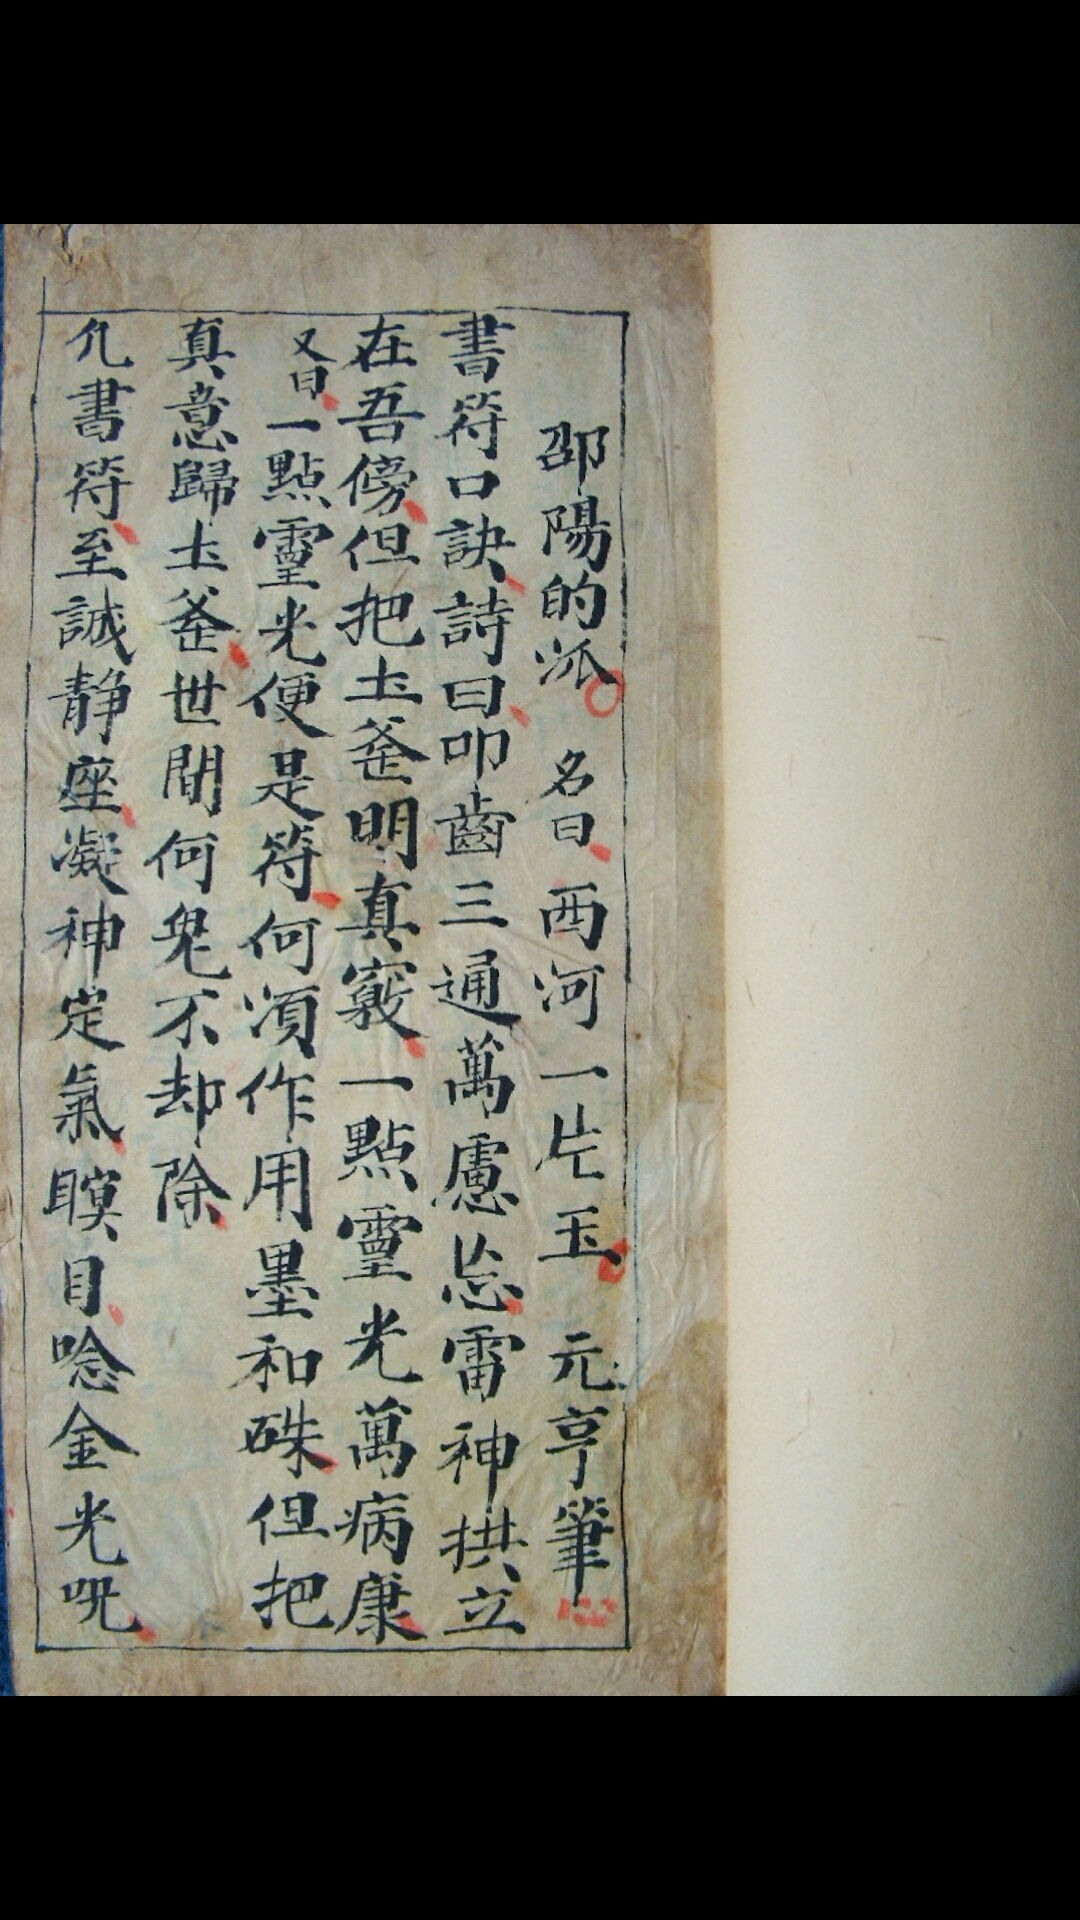 邵陽的派 名曰西河一片玉 元亨筆
書符口訣詩曰叩齒三通萬慮忘雷神拱立
在吾傍但把土釜明真竅一點靈光萬病康
又曰一點靈光便是符何須作用墨和硃但把
真意歸土釜世間何鬼不却除
凡書符至誠靜座凝神定氣瞑目唸金光咒